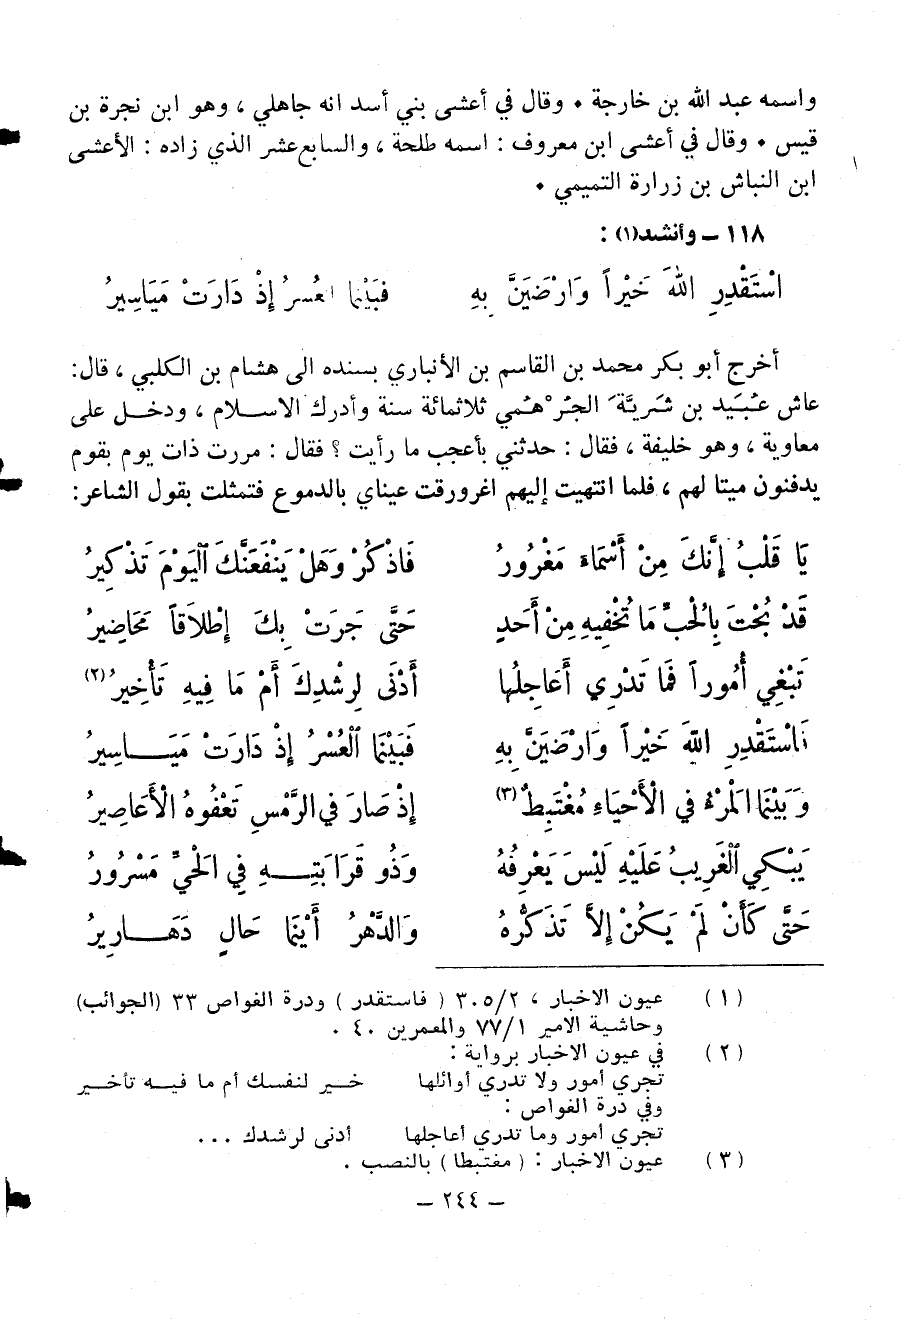 واسمه عبد الله بن خارجة • وقال في أعشى بني أسد انه جاهلي ، وهو ابن نجرة بن
قيس • وقال في أعشى ابن معروف : اسمه طلحة ، والسابع عشر الذي زاده : الأعشى
ابن النباش بن زرارة التميمي •
١١٨ – وأنشد(١) :
اسْتَقْدِرِ اللهَ خَيْراً وَارْضَيَنَّ بِهِ فَبَيْنَما العُسرُ إِذْ دَارَتْ مَيَاسِيرُ
أخرج أبو بكر محمد بن القاسم بن الأنباري بسنده الى هشام بن الكلبي ، قال:
عاش عُبَيد بن شَرِيَّة الجُرْهُمي ثلاثمائة سنة وأدرك الاسلام ، ودخل على
معاوية ، وهو خليفة ، فقال : حدثني بأعجب ما رأيت ؟ فقال : مررت ذات يوم بقوم
يدفنون ميتا لهم ، فلما انتهيت إليهم اغرورقت عيناي بالدموع فتمثلت بقول الشاعر:
يَا قَلْبُ إِنَّكَ مِنْ أَسْمَاءَ مَغْرُورُ فَاذْكُرْ وَهَلْ يَنْفَعَنَّكَ الْيَوْمَ تَذْكِيرُ
قَدْ بُحْتَ بِالْحُبِّ مَا تُخْفِيهِ مِنْ أَحَدٍ حَتَّى جَرَتْ بِكَ إِطْلَاقاً مَحَاضِيرُ
تَبْغِي أُمُوراً فَمَا تَدْرِي أَعَاجِلُهَا أَدْنَى لِرشْدِكَ أَمْ مَا فِيهِ تَأْخِيرُ(٢)
فَاسْتَقْدِرِ اللهَ خَيْراً وَارْضَيَنَّ بِهِ فَبَيْنَمَا الْعُسْرُ إِذْ دَارَتْ مَيَاسِيرُ
وَبَيْنَمَا الْمَرْءُ في الْأَحْيَاءِ مُغْتَبِطٌ(٣) إِذْ صَارَ في الرَّمْسِ تَعْفُوهُ الْأَعَاصِيرُ
يَبْكِي الْغَرِيبُ عَلَيْهِ لَيْسَ يَعْرِفُهُ وَذُو قَرَابَتِهِ في الْحَيِّ مَسْرُورُ
حَتَّى كَأَنْ لَمْ يَكُنْ إِلَّا تَذَكُّرُهُ وَالدَّهْرُ أَيْنَمَا حَالٍ دَهَارِيرُ
(١) عيون الاخبار ، ٣٠٥/٢ ( فاستقدر ) ودرة الغواص ٣٣ (الجوائب)
وحاشية الامير ٧٧/١ والمعمرين ٤٠ .
(٢) في عيون الاخبار برواية :
تجري أمور ولا تدري أوائلها خير لنفسك أم ما فيه تأخير
وفي درة الغواص :
تجري أمور وما تدري أعاجلها أدنى لرشدك ...
(٣) عيون الاخبار : ( مغتبطا ) بالنصب .
– ٢٤٤ –